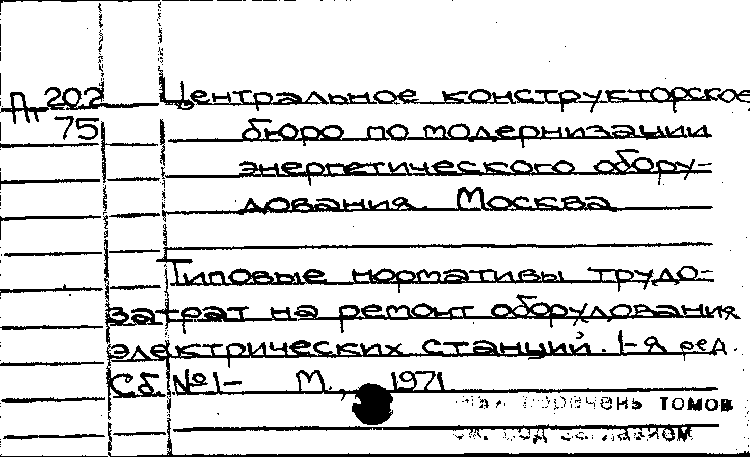 П202 Центральное конструкторское
75 бюро по модернизации
энергетического обору-
дования. Москва
Типовые нормативы трудо-
затрат на ремонт оборудования
электрических станций. 1-я ред.
Сб. №1- М., 1971
перечень томов
под заглавием